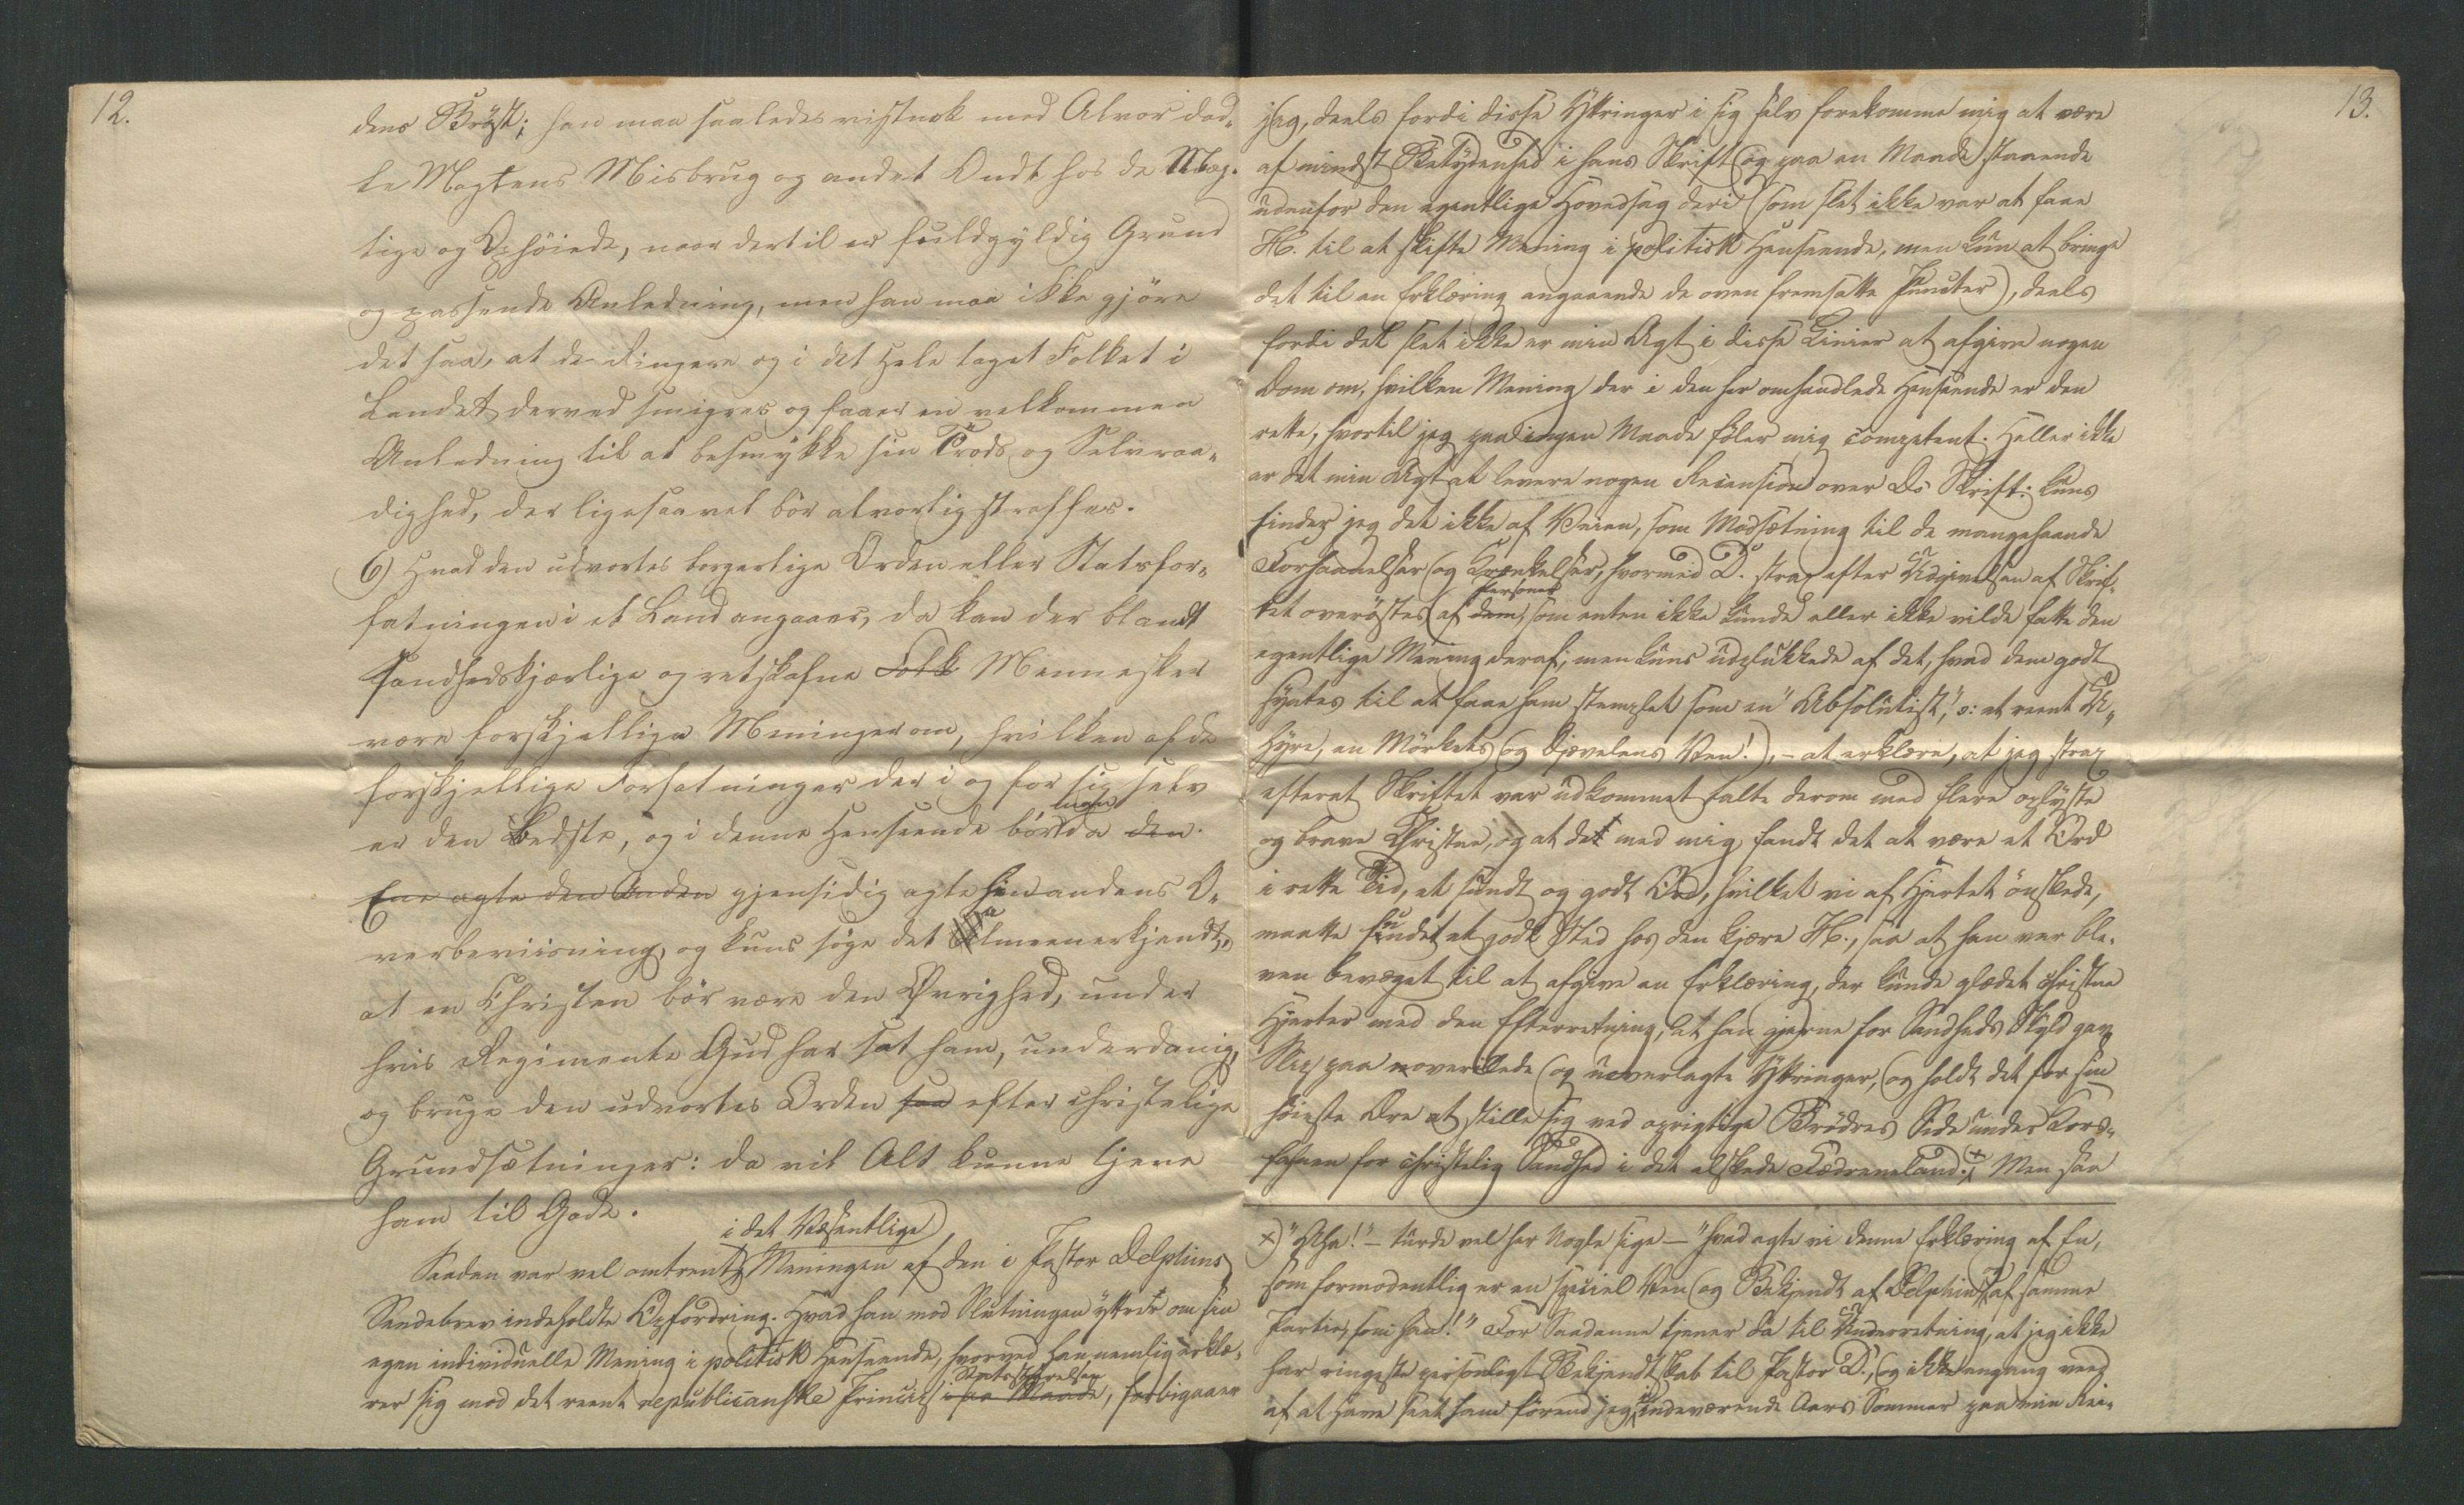 12.
dens Bröst; han maa saaledes vistnok med Alvor dad„
le Magtens Misbrug og andet Ondt hos de Mæg„
tige og Ophöiede, naar dertil er fuldgyldig Grund
og passende Anledning, men han maa ikke gjöre
det saa, at de Ringere og i det Hele taget Folket i
Landet derved smigres og faaer en velkommen
Anledning til at besmykke sin Trods og Selvraa„
dighed, der ligesaavel bör alvorlig straffes.
6) Hvad den udvortes borgerlige Orden eller Statsfor„
fatningen i et Land angaaer, da kan der blandt
sandhedskjærlige og retskafne Folk Mennesker
være forskjellige Meninger om, hvilken af de
forskjellige Forfatninger der i og for sig selv
er den Bedste, og i denne Henseende bör man da den
Ene agte den Anden gjensidig agte hinandens O„
verbeviisning, og kuns söge det Almeenerkjendt,
at en Christen bör være den Øvrighed, under
hvis Regimente Gud har sat ham, underdanig,
og bruge den udvortes Orden saa efter christelige
Grundsætninger: da vil Alt kunne tjene
ham til Gode.
i det Væsentlige
Saadan var vel omtrent Meningen af den i Pastor Delphins
Sendebrev indeholdte Opfordring. Hvad han mod Slutningen yttrer om sin
egen individuelle Mening i politisk Henseende, hvorved han nemlig erklæ„
Statsstyrelsen
rer sig mod det reent republicanske Princip i saa Maade, forbigaaer
13.
jeg, deels fordi disse Yttringer i sig selv forekomme mig at være
af mindst Betydenhed i hans Skrift og paa en Maade staaende
udenfor den egentlige Hovedsag deri (som slet ikke var at faae
H. til at skifte Mening i politisk Henseende, men kun at bringe
det til en Erklæring angaaende de oven fremsatte Puncter), deels
fordi det slet ikke er min Agt i disse Linier at afgive nogen
Dom om, hvilken Mening der i den her omhandlede Henseende er den
rette, hvortil jeg paa ingen Maade föler mig competent. Heller ikke
er det min Agt at levere nogen Recension over Ds Skrift: kuns
finder jeg det ikke af Veien, som Modsætning til de mangehaande
Forhaanelser og Krænkelser, hvormed D. strax efter Udgivelsen af Skrif„
Personer
tet overöstes af dem, som enten ikke kunde eller ikke vilde fatte den
egentlige Mening deraf, men kuns udplukkede af det, hvad dem godt
syntes til at faae ham stemplet som en "Absolutist," ɔ: et reent U„
hyre, en Mörkets og Djævelens Ven!), – at erklære, at jeg strax
efterat Skriftet var udkommet talte derom med flere oplyste
og brave Christne, og at de med mig fandt det at være et Ord
i rette Tid, et sundt og godt Ord, hvilket vi af Hjertet önskede,
maatte fundet et godt Sted hos den kjære H., saa at han var ble„
ven bevæget til at afgive en Erklæring, der kunde glædet christne
Hjerter med den Efterretning, at han gjerne for Sandheds Skyld gav
Slip paa overilede og uoverlagte Yttringer, og holdt det for sin
höieste Ære at stille sig ved oprigtige Brödres Side under Kors„
fahnen for christelig Sandhed i det elskede Fædreneland. ×) Men saa
×) "Aha!" – turde vel her Nogle sige – "hvad agte vi denne Erklæring af En,
som formodentlig er en speciel Ven og Bekjendt af Delphin af samme
Partie, som han!" For Saadanne tjener da til Underretning, at jeg ikke
har ringeste personligt Bekjendtskab til Pastor D., og ikke engang veed
af at have seet ham förend jeg i indeværende Aars Sommer paa min Rei„